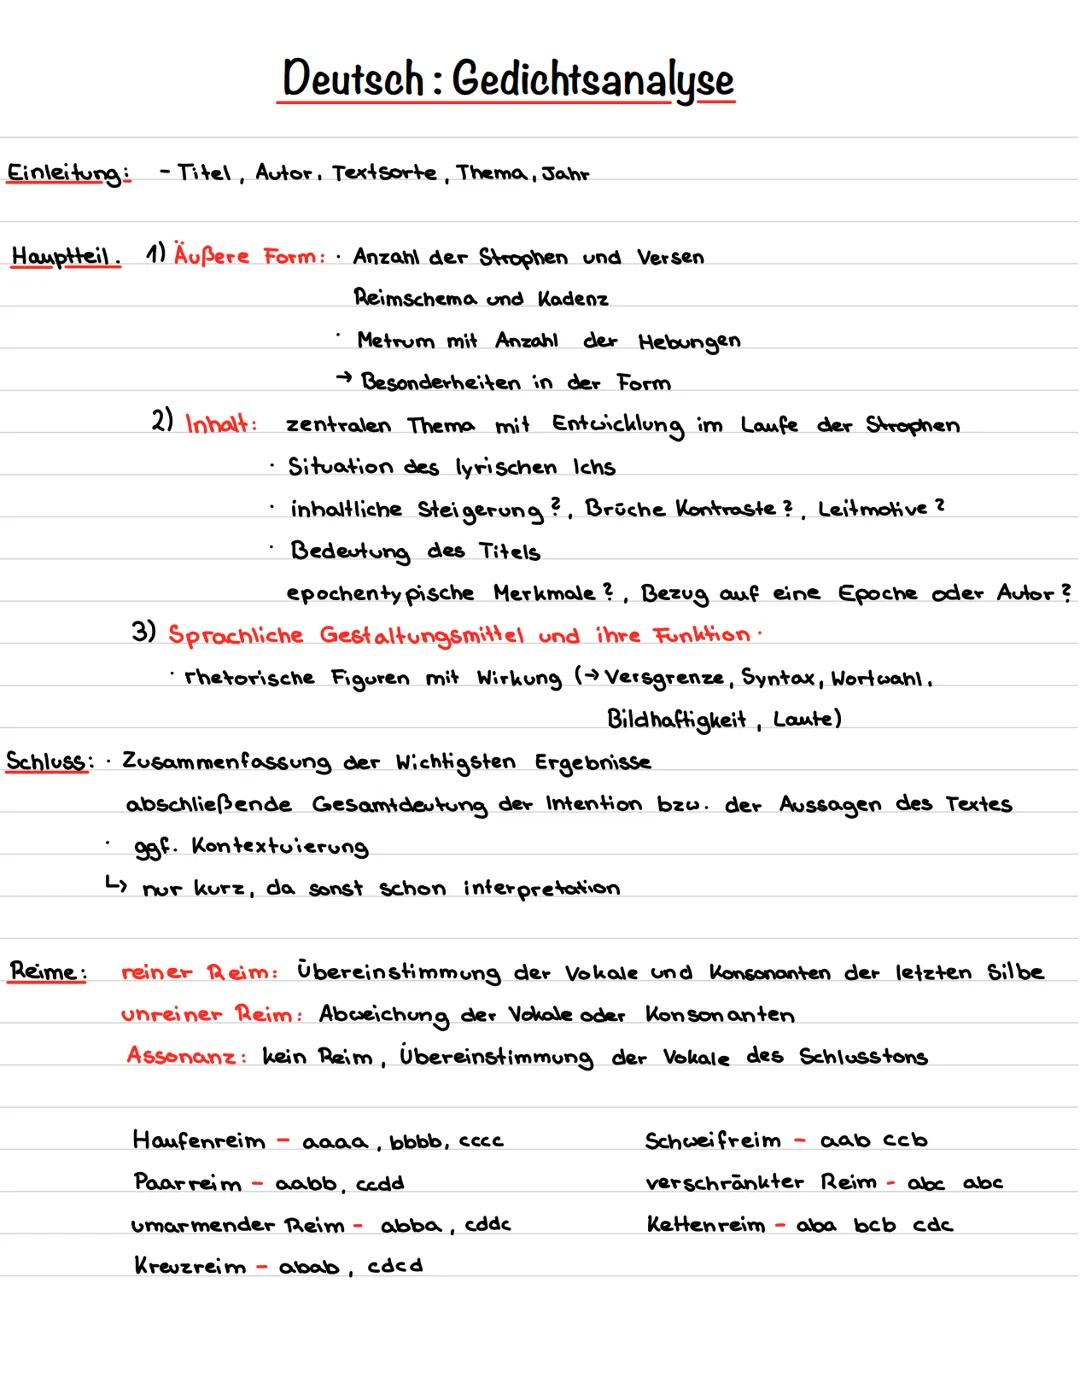 Deutsch: Gedichtsanalyse
Einleitung: - Titel, Autor, Textsorte, Thema, Jahr
Hauptteil. 1) Äußere Form: · Anzahl der Strophen und Versen
Reimschema und Kadenz
· Metrum mit Anzahl der Hebungen
→ Besonderheiten in der Form
2) Inhalt: zentralen Thema mit Entwicklung im Laufe der Strophen
· Situation des lyrischen Ichs
· inhaltliche Steigerung?, Brüche Kontraste?, Leitmotive?
· Bedeutung des Titels
epochentypische Merkmale?, Bezug auf eine Epoche oder Autor?
3) Sprachliche Gestaltungsmittel und ihre Funktion·
· rhetorische Figuren mit Wirkung (→ Versgrenze, Syntax, Wortwahl,
Bildhaftigkeit, Laute)
Schluss: · Zusammenfassung der Wichtigsten Ergebnisse
abschließende Gesamtdeutung der Intention bzw. der Aussagen des Textes
· ggf. Kontextuierung
↳ nur kurz, da sonst schon interpretation
Reime: reiner Reim: Übereinstimmung der Vokale und Konsonanten der letzten Silbe
unreiner Reim: Abweichung der Vokale oder Konsonanten
Assonanz: kein Reim, Übereinstimmung der Vokale des Schlusstons
Haufenreim - aaaa, bbbb, cccc
Schweifreim - aab ccb
Paarreim - aabb, ccdd
verschränkter Reim - abc abc
umarmender Reim - abba, cddc
Kettenreim - aba bcb cdc
Kreuzreim - abab, cdcd